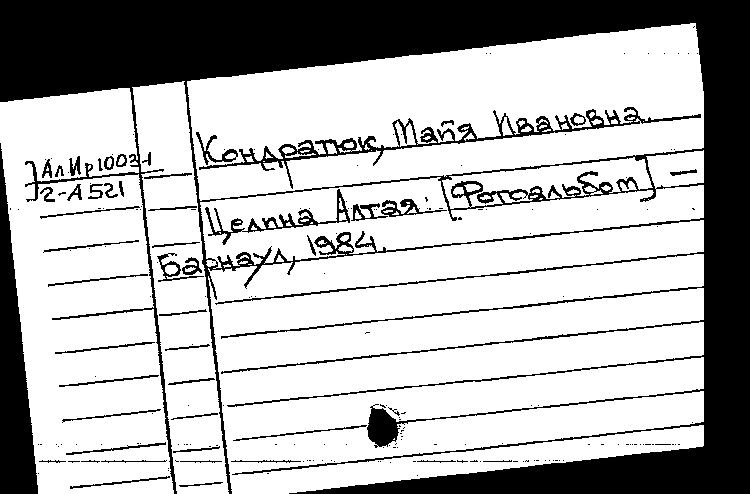 Кондратюк, Майя Ивановна.
АлИр1003-1
2-А521
Целина Алтая: [Фотоальбом] —
Барнаул, 1984.